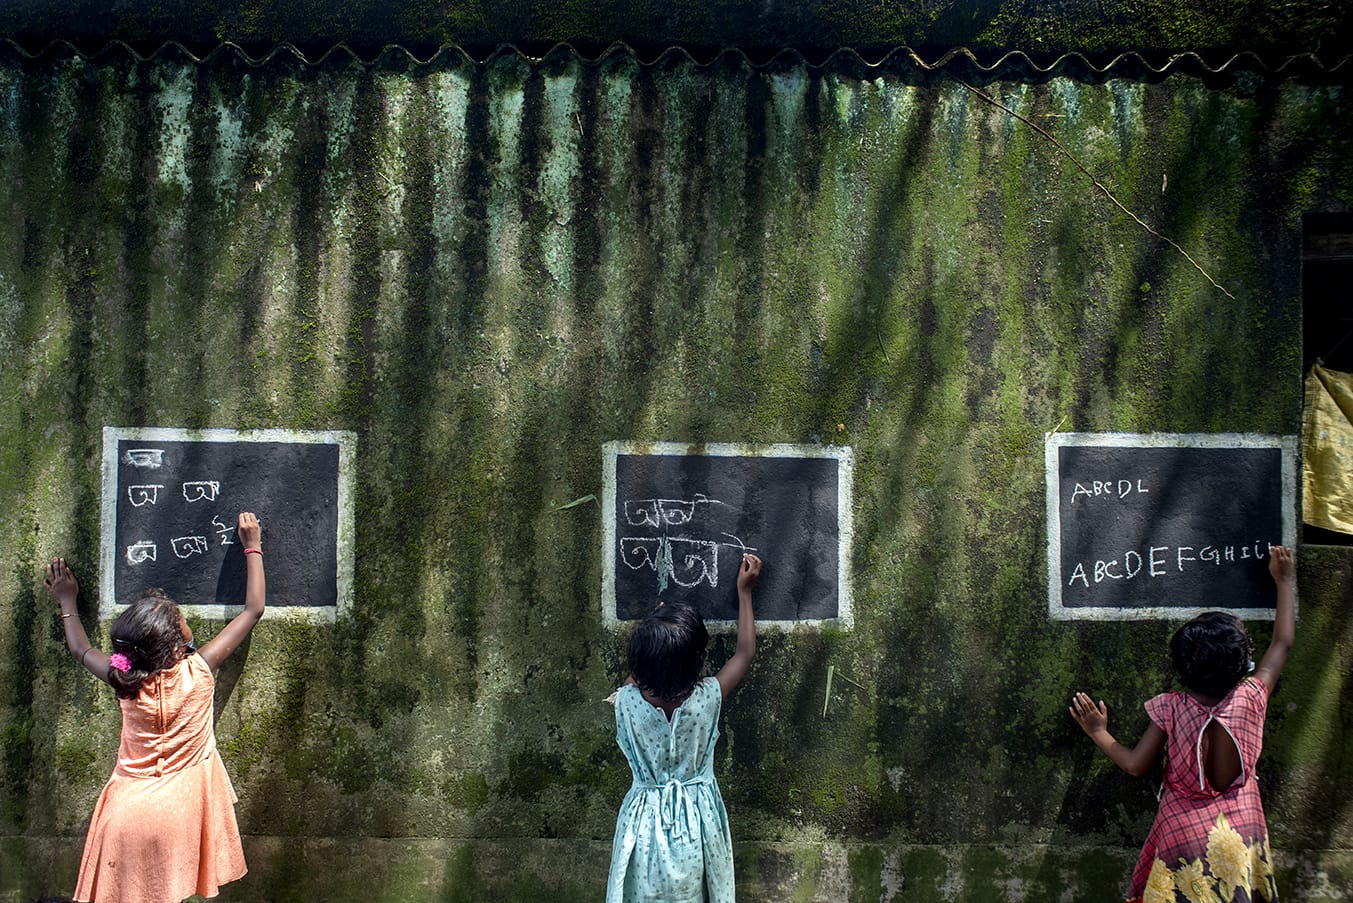 অ অ
অ অ
অঅ
অঅ
ABCDL
ABCDEFGHI